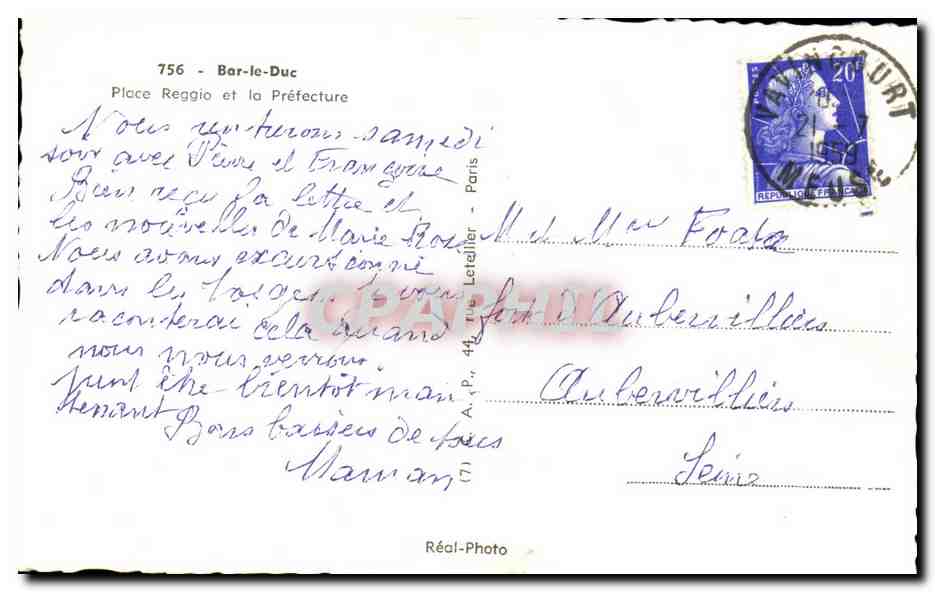 756 - Bar-le-Duc
Place Reggio et la Préfecture
Nous rentrerons samedi
soir avec Pierre et Françoise
Bien reçu la lettre et
les nouvelles de Marie Rose
Nous avons excursionné
dans les Vosges je vous
raconterai cela quand
nous nous verrons
peut être bientôt main
tenant
Bons baisers de tous
Maman
(7) A. P., 44, rue Letellier - Paris
20F
REPUBLIQUE FRANCAISE
VAVINCOURT
21 - 7
1958
MEUSE
M et Mme
fort d'Aubervilliers
Aubervilliers
Seine
CPARAMA
Réal-Photo